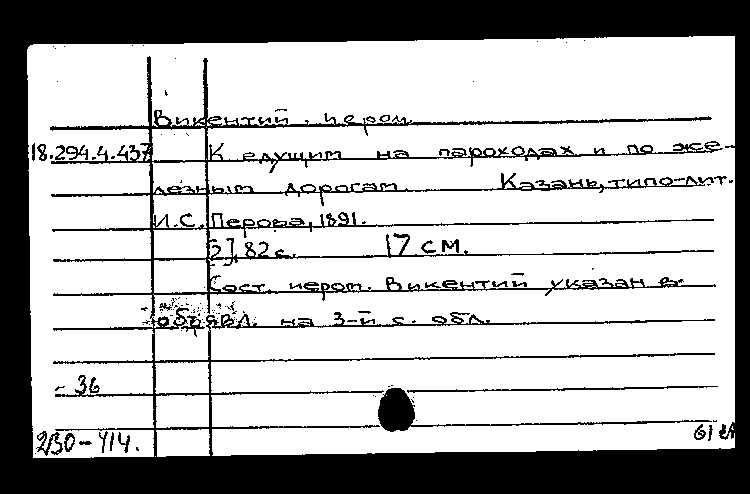 Викентий, иером.
18.294.4.437 К едущим на пароходах и по же-
лезным дорогам. Казань, типо-лит.
И.С. Перова, 1891.
[2], 82 с. 17 см.
Сост. иером. Викентий указан в
объявл. на 3-й с. обл.
- 36
2/30-414.